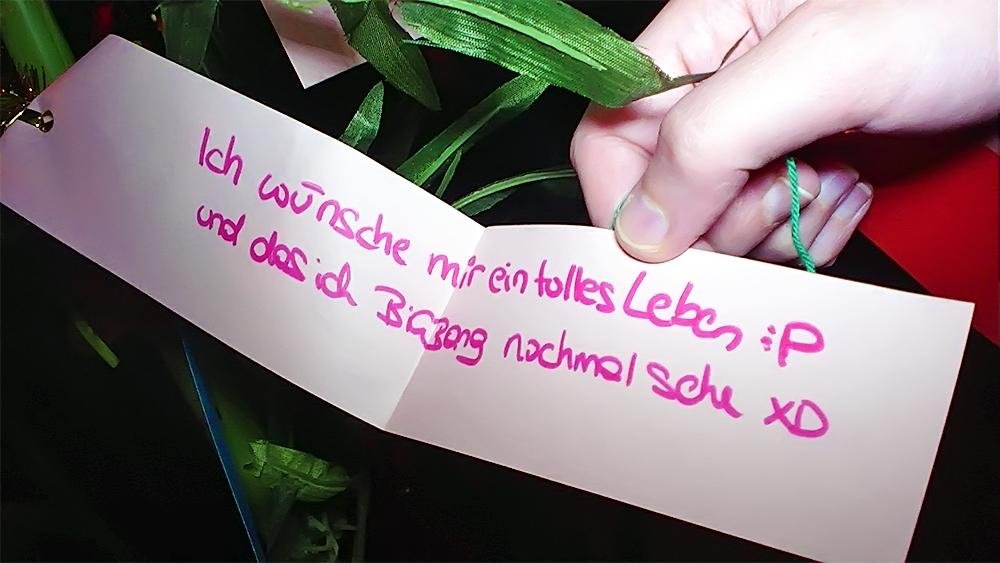 Ich wünsche mir ein tolles Leben :P
und das ich BiGBang nochmal sehe XD